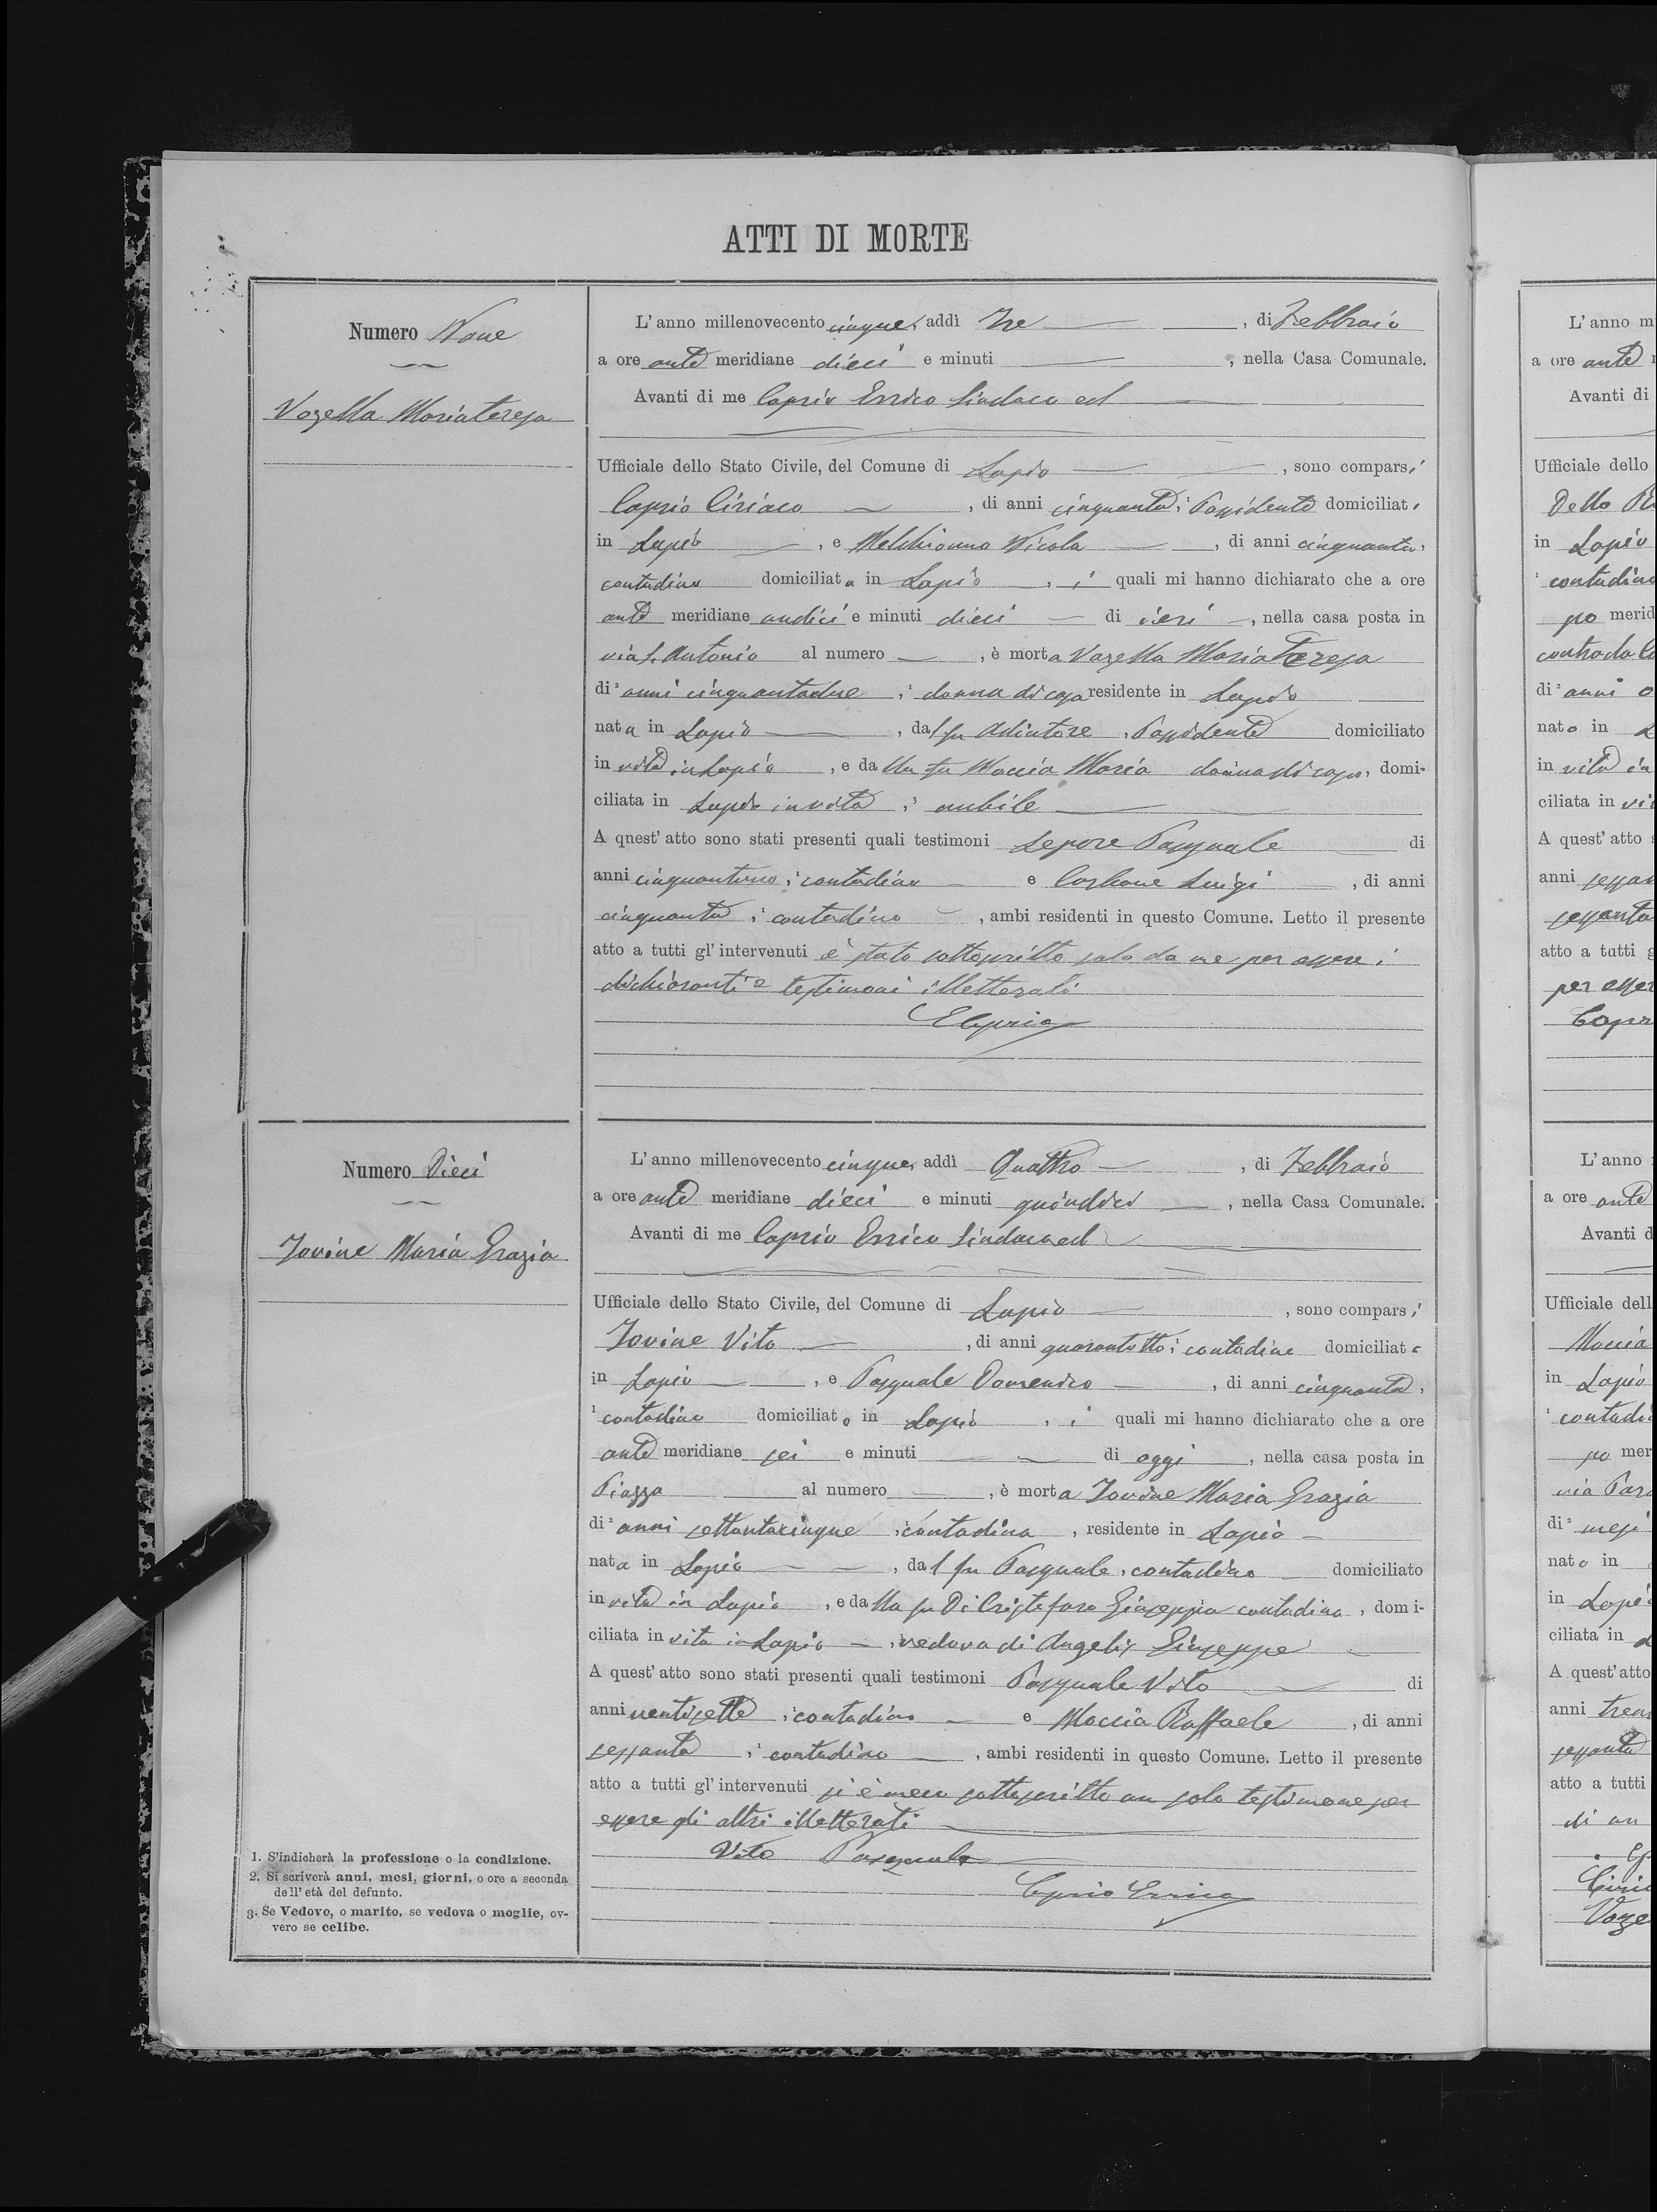 ATTI DI MORTE
Numero Nove
Vozella Mariateresa
L'anno millenovecento cinque, addì Tre, di Febbraio
a ore ante meridiane dieci e minuti, nella Casa Comunale.
Avanti di me Caprio Errico Sindaco ed
Ufficiale dello Stato Civile, del Comune di Lapio, sono comparsi
Caprio Ciriaco, di anni cinquanta, Possidente domiciliat
in Lapio, e Melchionno Nicola, di anni cinquanta,
contadino domiciliato in Lapio, i quali mi hanno dichiarato che a ore
ante meridiane undici e minuti dieci di ieri, nella casa posta in
via S. Antonio al numero, è morta Vozella Maria Teresa
di anni cinquantadue, donna di casa residente in Lapio
nata in Lapio, dal fu Adiutore, Possidente domiciliato
in vita in Lapio, e da lla fu Moccia Maria donna di casa, domi-
ciliata in Lapio in vita, nubile
A quest'atto sono stati presenti quali testimoni Lepore Pasquale di
anni cinquantuno, contadino e Carbone Luigi, di anni
cinquanta, contadino, ambi residenti in questo Comune. Letto il presente
atto a tutti gl'intervenuti è stato sottoscritto solo da me per essere i
dichiaranti e testimoni illetterati
ECaprio
Numero Dieci
Iovine Maria Grazia
L'anno millenovecento cinque, addì Quattro, di Febbraio
a ore ante meridiane dieci e minuti quindici, nella Casa Comunale.
Avanti di me Caprio Errico Sindaco ed
Ufficiale dello Stato Civile, del Comune di Lapio, sono comparsi
Iovine Vito, di anni quarantotto, contadino domiciliato
in Lapio, e Pasquale Domenico, di anni cinquanta,
contadino domiciliato in Lapio, i quali mi hanno dichiarato che a ore
ante meridiane sei e minuti di oggi, nella casa posta in
Piazza al numero, è morta Iovine Maria Grazia
di anni settantacinque, contadina, residente in Lapio
nata in Lapio, dal fu Pasquale, contadino domiciliato
in vita in Lapio, e da lla fu Di Cristofaro Giuseppa contadina, domi-
ciliata in vita in Lapio, vedova di Angelis Giuseppe
A quest'atto sono stati presenti quali testimoni Pasquale Vito di
anni ventisette, contadino e Moccia Raffaele, di anni
sessanta, contadino, ambi residenti in questo Comune. Letto il presente
atto a tutti gl'intervenuti si è meco sottoscritto un solo testimone per
essere gli altri illetterati
Vito Pasquale
Caprio Errico
1. S'indicherà la professione o la condizione.
2. Si scriverà anni, mesi, giorni, o ore a seconda
dell'età del defunto.
3. Se Vedovo, o marito, se vedova o moglie, ov-
vero se celibe.
L'anno m
a ore ante
Avanti di
Ufficiale dello
Dello
in Lapio
contadino
po merid
contrada
di anni
nato in
in vita in
ciliata in
A quest'atto
anni
sessanta
atto a tutti g
per esser
Capr
L'anno
a ore ante
Avanti d
Ufficiale dell
Moccia
in Lapio
contadi
po mer
via
di mesi
nato in
in Lapio
ciliata in
A quest'atto
anni tren
sessanta
atto a tutti
di un
Ciria
Voze